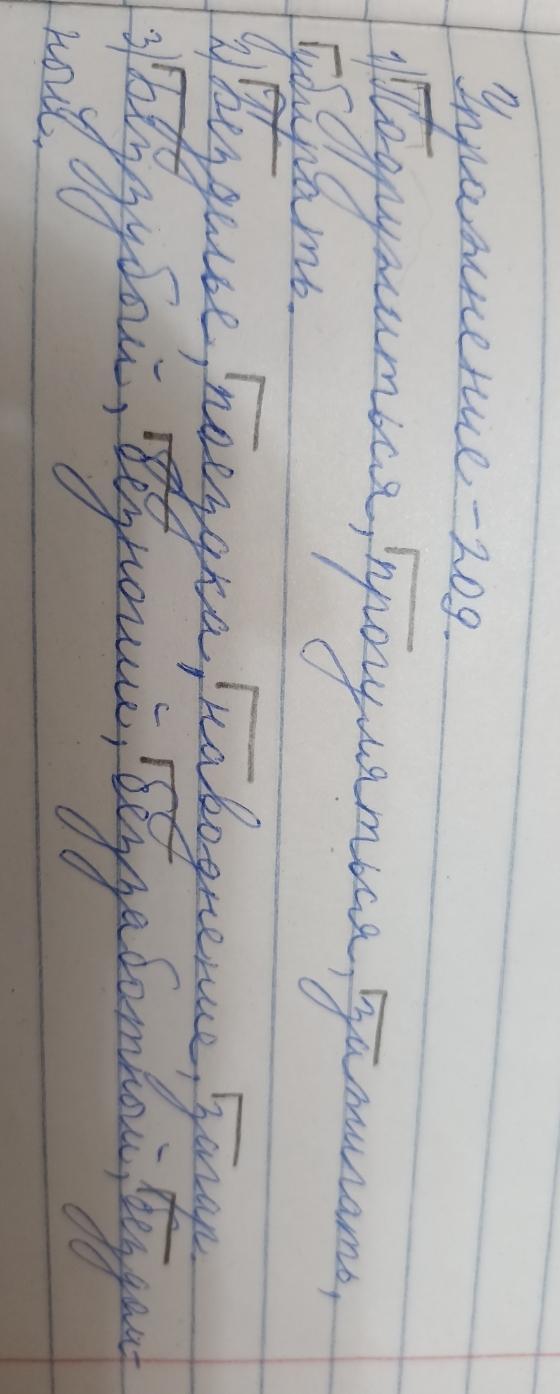 Упражнение-209.
1) Подружиться, прогуляться, затипать,
убирать.
2) Безделье, поездка, наводнение, загар.
3) Беззубый, безногий, беззаботный, бездом-
ный.